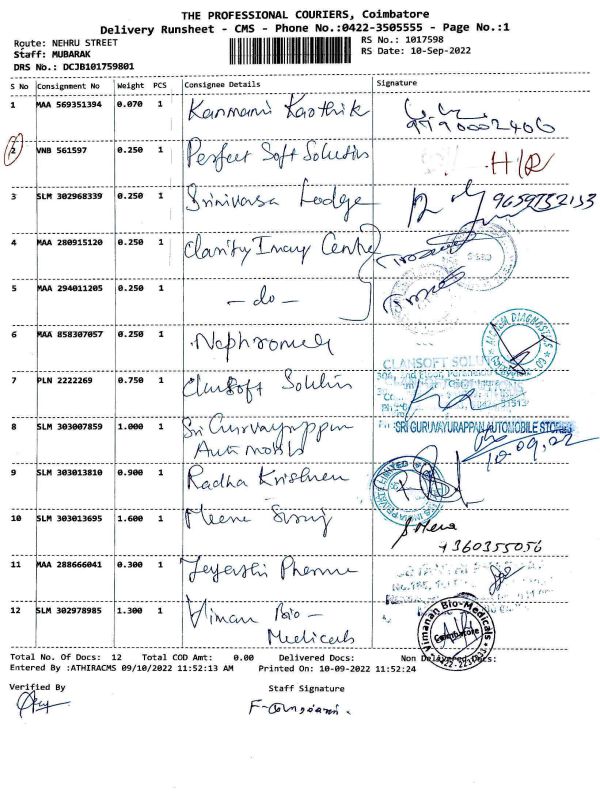 THE PROFESSIONAL COURIERS, Coimbatore
Delivery Runsheet - CMS - Phone No.:0422-3505555 - Page No.:1
Route: NEHRU STREET
RS No.: 1017598
Staff: MUBARAK
RS Date: 10-Sep-2022
DRS No.: DCJB101759801
S No Consignment No Weight PCS Consignee Details Signature
1 MAA 569351394 0.070 1 Kanmani Karthik
9790002406
2 VNB 561597 0.250 1 Perfect Soft Solution H/R
3 SLM 302968339 0.250 1 Srinivasa Lodge 9659752153
4 MAA 280915120 0.250 1 Clarity Imag Centre
5 MAA 294011205 0.250 1 - do -
6 MAA 858307057 0.250 1
7 PLN 2222269 0.750 1 Clansoft Solution
CLANSOFT SOLU
8 SLM 303007859 1.000 1 Sri Guruvayurappan
Automobils
SRI GURUVAYURAPPAN AUTOMOBILE STORES
10.09.22
9 SLM 303013810 0.900 1 Radha Krishnen
10 SLM 303013695 1.600 1
9360355056
11 MAA 288666041 0.300 1
12 SLM 302978985 1.300 1 Viman Bio-
Medicals
Vimanan Bio-Medicals
Coimbatore
Total No. Of Docs: 12 Total COD Amt: 0.00 Delivered Docs: Non Delivered Docs:
Entered By :ATHIRACMS 09/10/2022 11:52:13 AM Printed On: 10-09-2022 11:52:24
Verified By Staff Signature